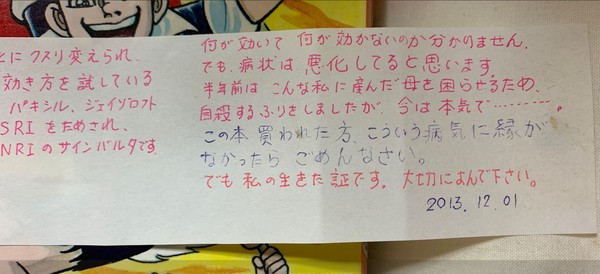 とに クスリ変えられ、
効き方を試している
パキシル、ジェイゾロフト
SRIをためされ、
NRIのサインバルタです
何が効いて 何が効かないのか分かりません。
でも、病状は 悪化してると思います。
半年前は こんな私に産んだ 母を困らせるため、
自殺するふりをしましたが、今は 本気で‥‥‥‥。
この本 買われた方、こういう病気に縁が
なかったら ごめんなさい。
でも 私の生きた証です。大切によんで下さい。
2013.12.01